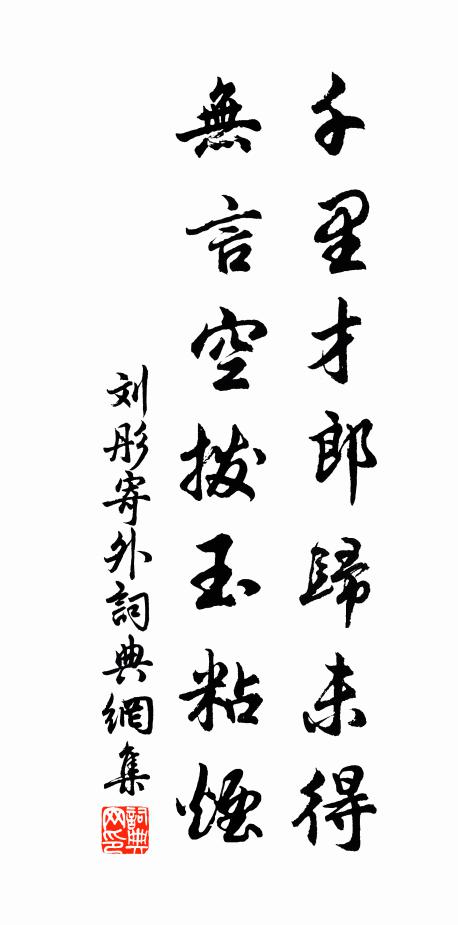 千里才郎歸未得
無言空撥玉粘煙
刘彤寄外詞典網集
詞典网印